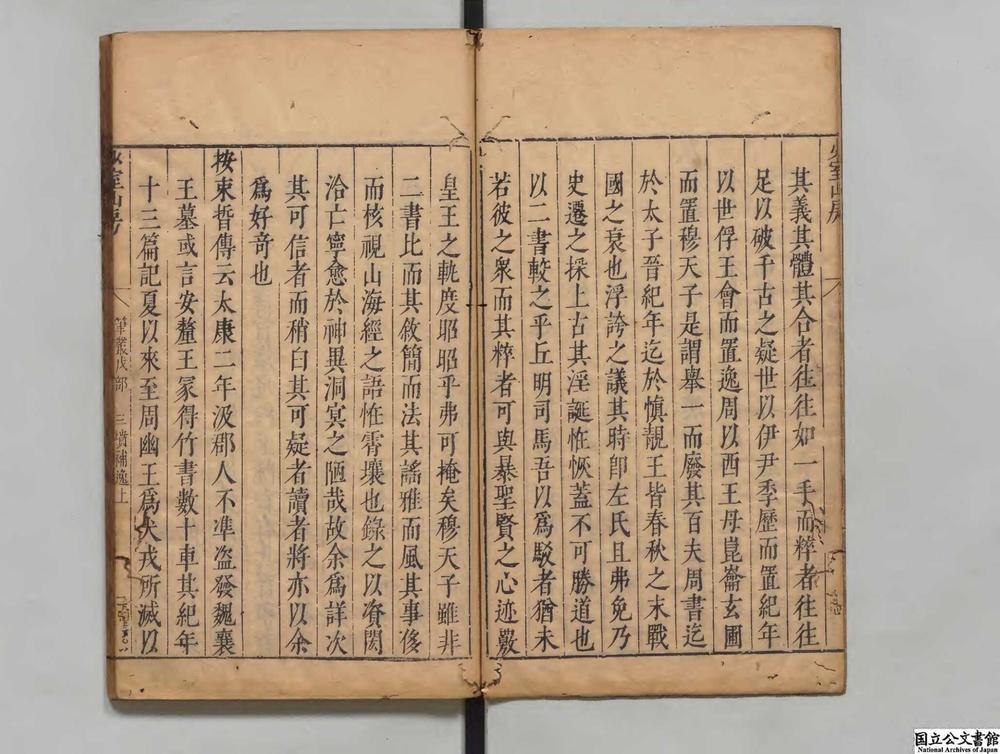 其義其體其合者往往如一手而粹者往往
足以破千古之疑世以伊尹季歷而置紀年
以世俘王會而置逸周以西王母崑崙玄圃
而置穆天子是謂舉一而廢其百夫周書迄
於太子晉紀年迄於慎靚王皆春秋之末戰
國之衰也浮誇之議其時卽左氏且弗免乃
史遷之採上古其淫誕恠恢蓋不可勝道也
以二書較之乎丘明司馬吾以爲駁者猶未
若彼之衆而其粹者可與暴聖賢之心迹嚴
皇王之軌度耶耶乎弗可掩矣穆天子雖非
二書比而其敘簡而法其謠雅而風其事侈
而核視山海經之語恠霄壤也錄之以資閎
洽亡寧愈於神異洞冥之陋哉故余爲詳次
其可信者而稍白其可疑者讀者將亦以余
爲好竒也
按束晳傳云太康二年汲郡人不凖盗發魏襄
王墓或言安釐王冢得竹書數十車其紀年
十三篇記夏以來至周幽王爲犬戎所滅以
筆叢戊部 三墳補逸上
少室山房
国立公文書館
National Archives of Japan